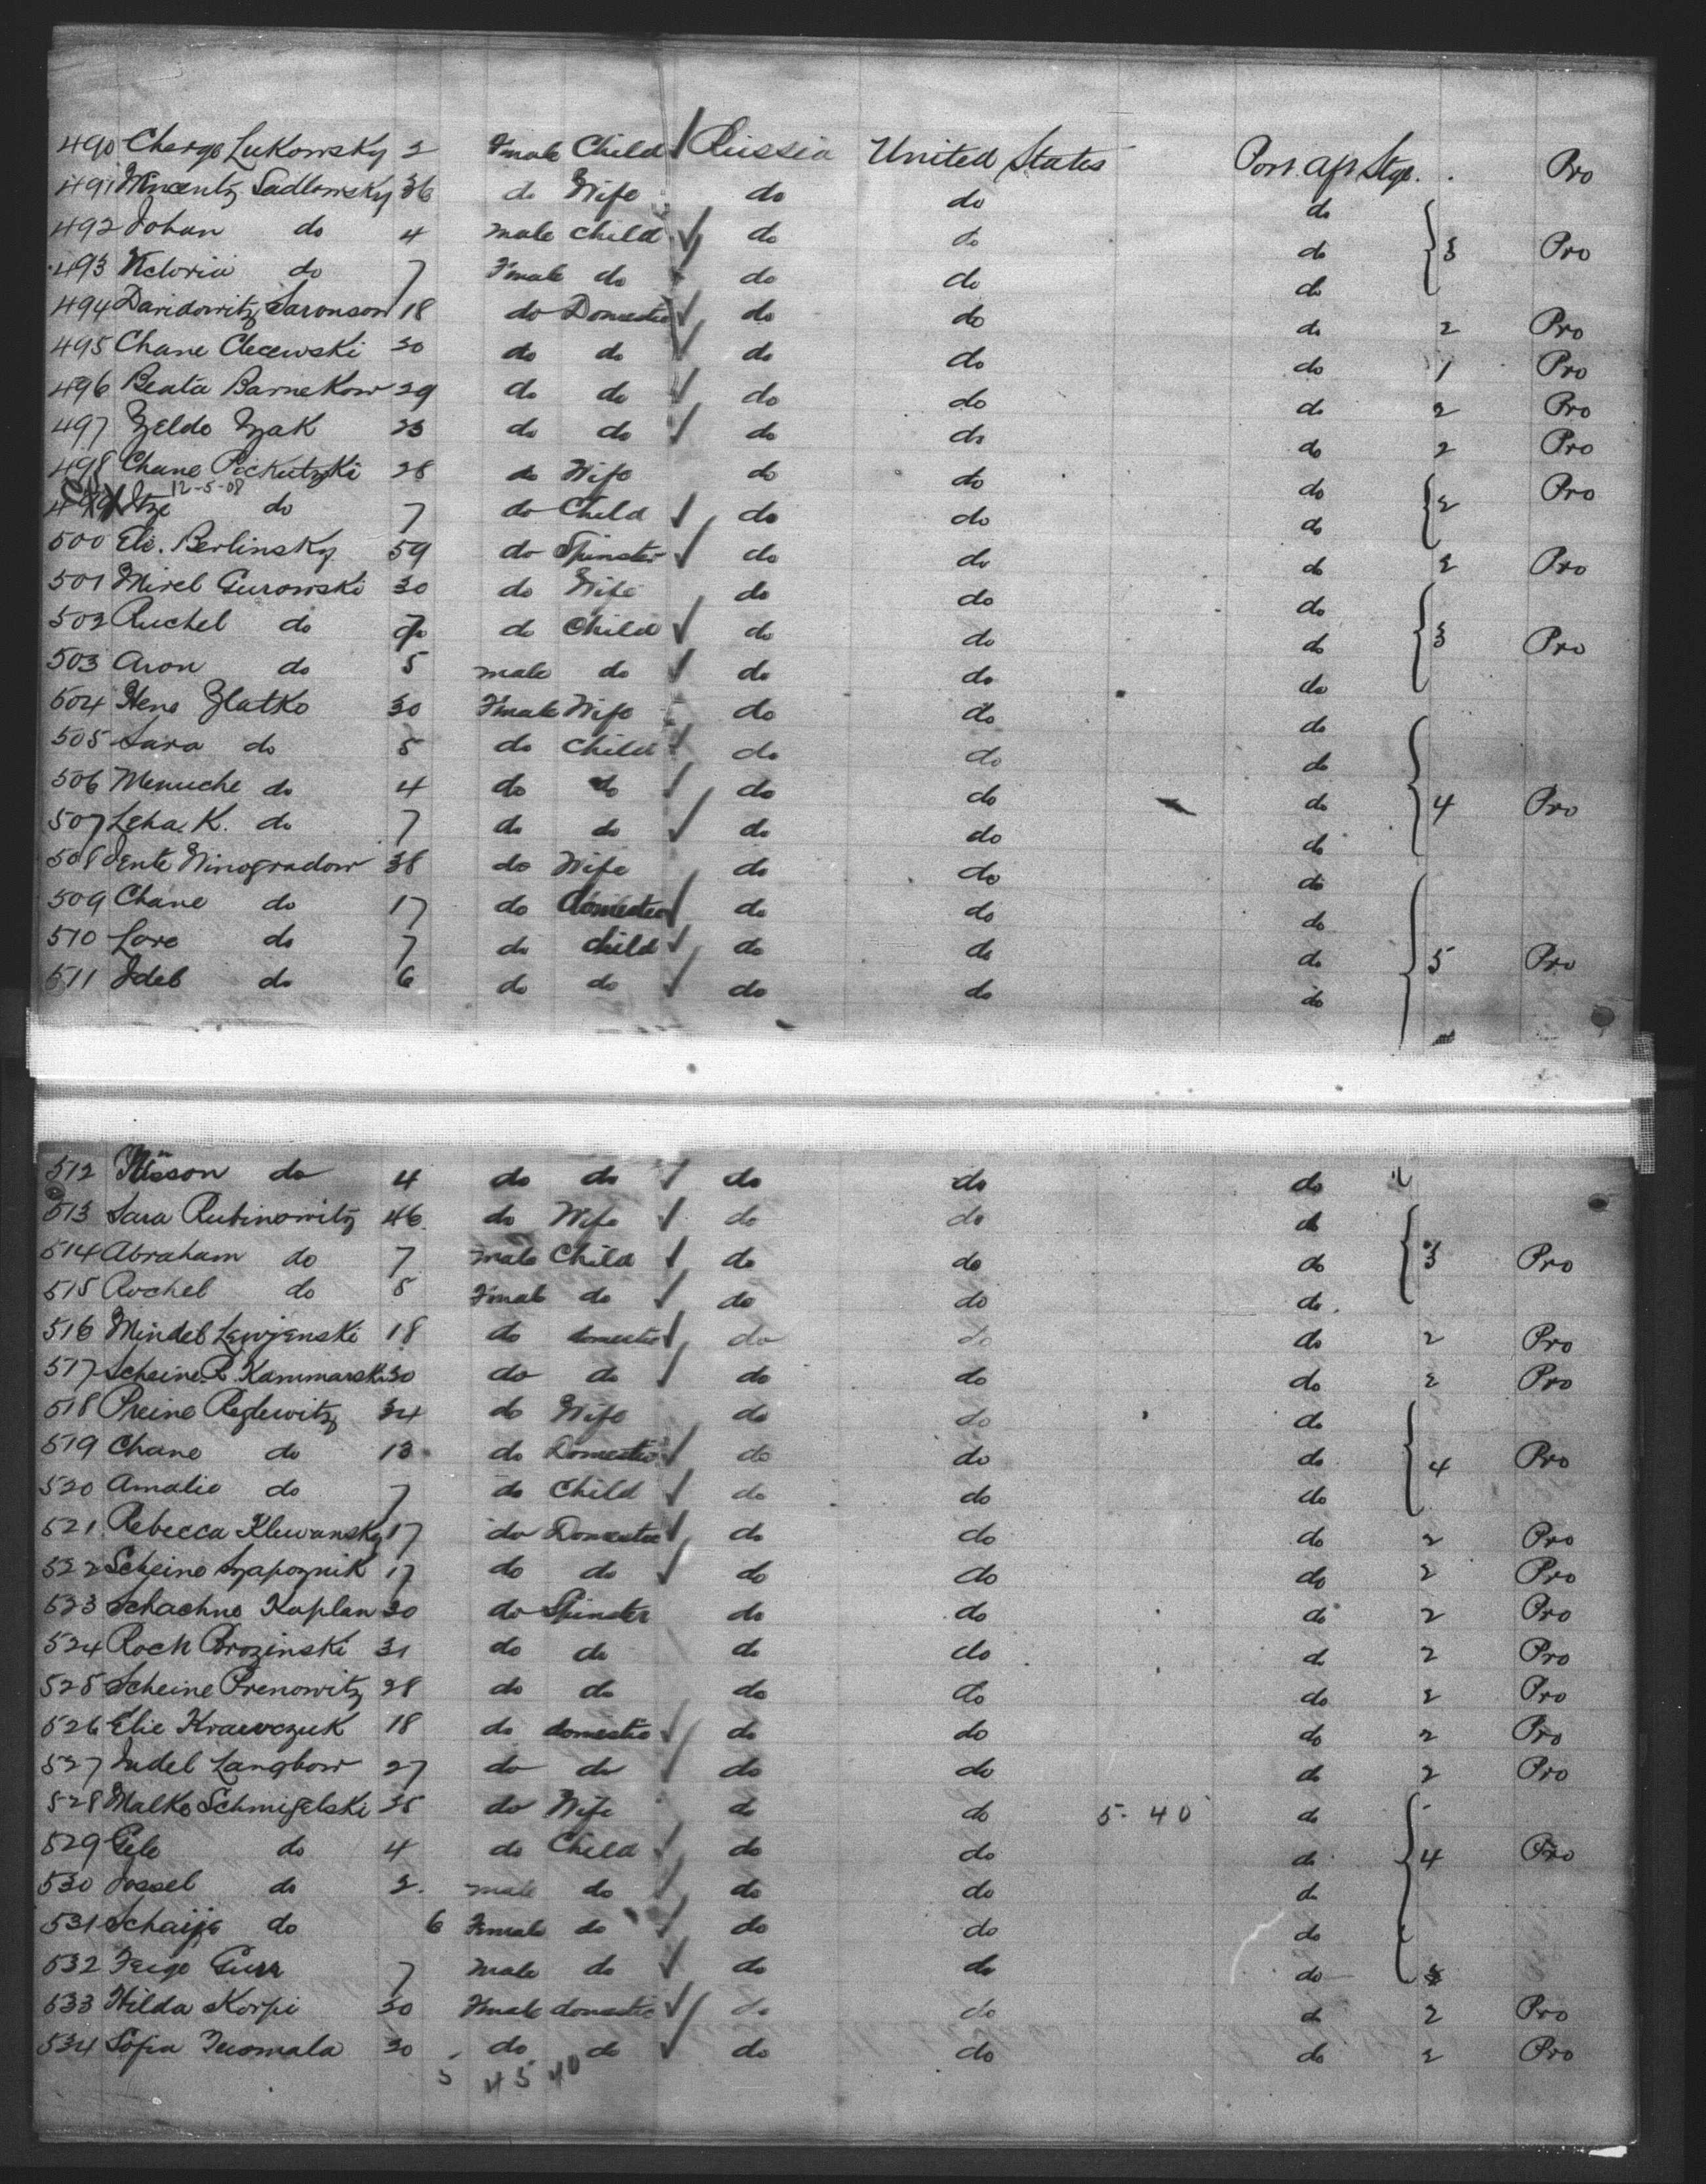 490 Cherge Lukowsky 2 Fmale Child ✓ Russia United States Port. aft Stge. Pro
491 Wincenty Sadlowsky 36 do Wife do do do
492 Johan do 4 male child ✓ do do do } 3 Pro
493 Victoria do 7 Fmale do do do do
494 Davidowitz Saronson 18 do Domestic ✓ do do do 2 Pro
495 Chane Clecewski 30 do do ✓ do do do 1 Pro
496 Beata Barnekow 29 do do ✓ do do do 2 Pro
497 Zelde Izak 23 do do ✓ do do do 2 Pro
498 Chane Pickutzki 28 do Wife do do do
12-5-08
499 Itze do 7 do Child ✓ do do do } 2 Pro
500 Eli. Berlinsky 59 do Spinster ✓ do do do 2 Pro
501 Mirel Gurowski 30 do Wife do do do
502 Ruchel do 7 do Child ✓ do do do } 3 Pro
503 Aron do 5 male do ✓ do do do
504 Hene Zlatko 30 Fmale Wife do do do
505 Sara do 5 do Child ✓ do do do
506 Menuche do 4 do do ✓ do do do } 4 Pro
507 Leha. K. do 7 do do ✓ do do do
508 Jente Winogradow 38 do Wife do do do
509 Chane do 17 do domestic ✓ do do do
510 Lore do 7 do child ✓ do do do } 5 Pro
511 Idel do 6 do do ✓ do do do
512 Nisson do 4 do do ✓ do do do
513 Sara Rubinowitz 46 do Wife ✓ do do do
514 Abraham do 7 male Child ✓ do do do } 3 Pro
515 Rochel do 5 Fmale do ✓ do do do
516 Mindel Lewjenski 18 do domestic ✓ do do do 2 Pro
517 Scheine. R. Kammarski 30 do do ✓ do do do 2 Pro
518 Preine Reglewitz 34 do Wife do do do
519 Chane do 13 do Domestic ✓ do do do } 4 Pro
520 Amalie do 7 do Child ✓ do do do
521 Rebecca Klewansky 17 do Domestic ✓ do do do 2 Pro
522 Scheine Szapoznik 17 do do ✓ do do do 2 Pro
523 Schachne Kaplan 30 do Spinster do do do 2 Pro
524 Roch Brozinski 31 do do do do do 2 Pro
525 Scheine Prenowitz 28 do do do do do 2 Pro
526 Elie Krawczuk 18 do domestic ✓ do do do 2 Pro
527 Judel Langbow 27 do do ✓ do do do 2 Pro
528 Malke Schmigelski 35 do Wife do do 5-40 do
529 Gele do 4 do Child ✓ do do do } 4 Pro
530 Jossel do 2. male do ✓ do do do
531 Schaije do 6 Female do ✓ do do do
532 Feige Gurr 7 male do ✓ do do do
533 Hilda Korpi 30 Fmale domestic ✓ do do do 2 Pro
534 Sofia Tuomala 30 do do ✓ do do do 2 Pro
5 45 40